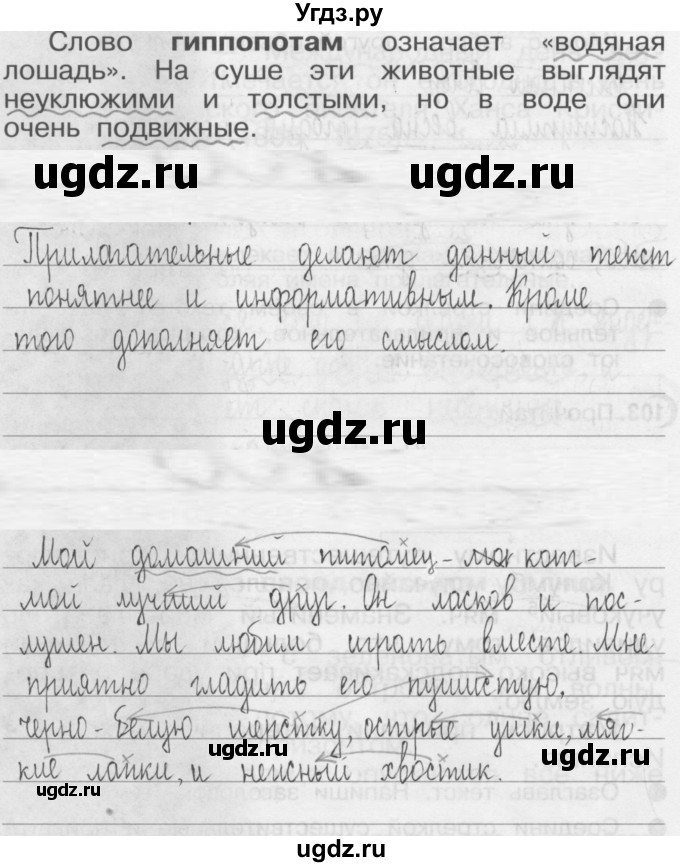 Угдз.ру
Слово гиппопотам означает «водяная
лошадь». На суше эти животные выглядят
неуклюжими и толстыми, но в воде они
очень подвижные.
ugdz.ru ugdz.ru
Прилагательные делают данный текст
понятнее и информативным. Кроме
того дополняет его смыслом.
ugdz.ru
Мой домашний питомец - кот -
мой лучший друг. Он ласков и пос-
лушен. Мы любим играть вместе. Мне
приятно гладить его пушистую,
черно-белую шерстку, острые ушки, мяг-
кие лапки, и нежный хвостик.
ugdz.ru ugdz.ru
ugdz.ru